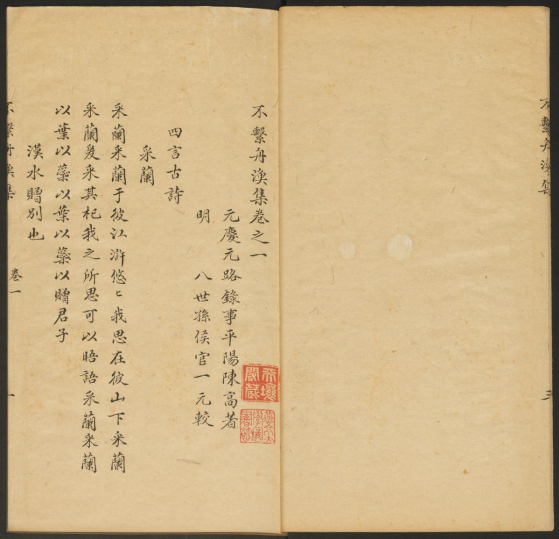 不繫舟漁集
不繫舟漁集卷之一
元慶元路錄事平陽陳高著
明　八世孫侯官一元較
四言古詩
采蘭
采蘭采蘭于彼江滸悠〻我思在彼山下采蘭
采蘭爰采其杞我之所思可以晤語采蘭采蘭
以葉以蘂以葉以蘂以贈君子
漢水贈別也
不繫舟漁集
卷一
一